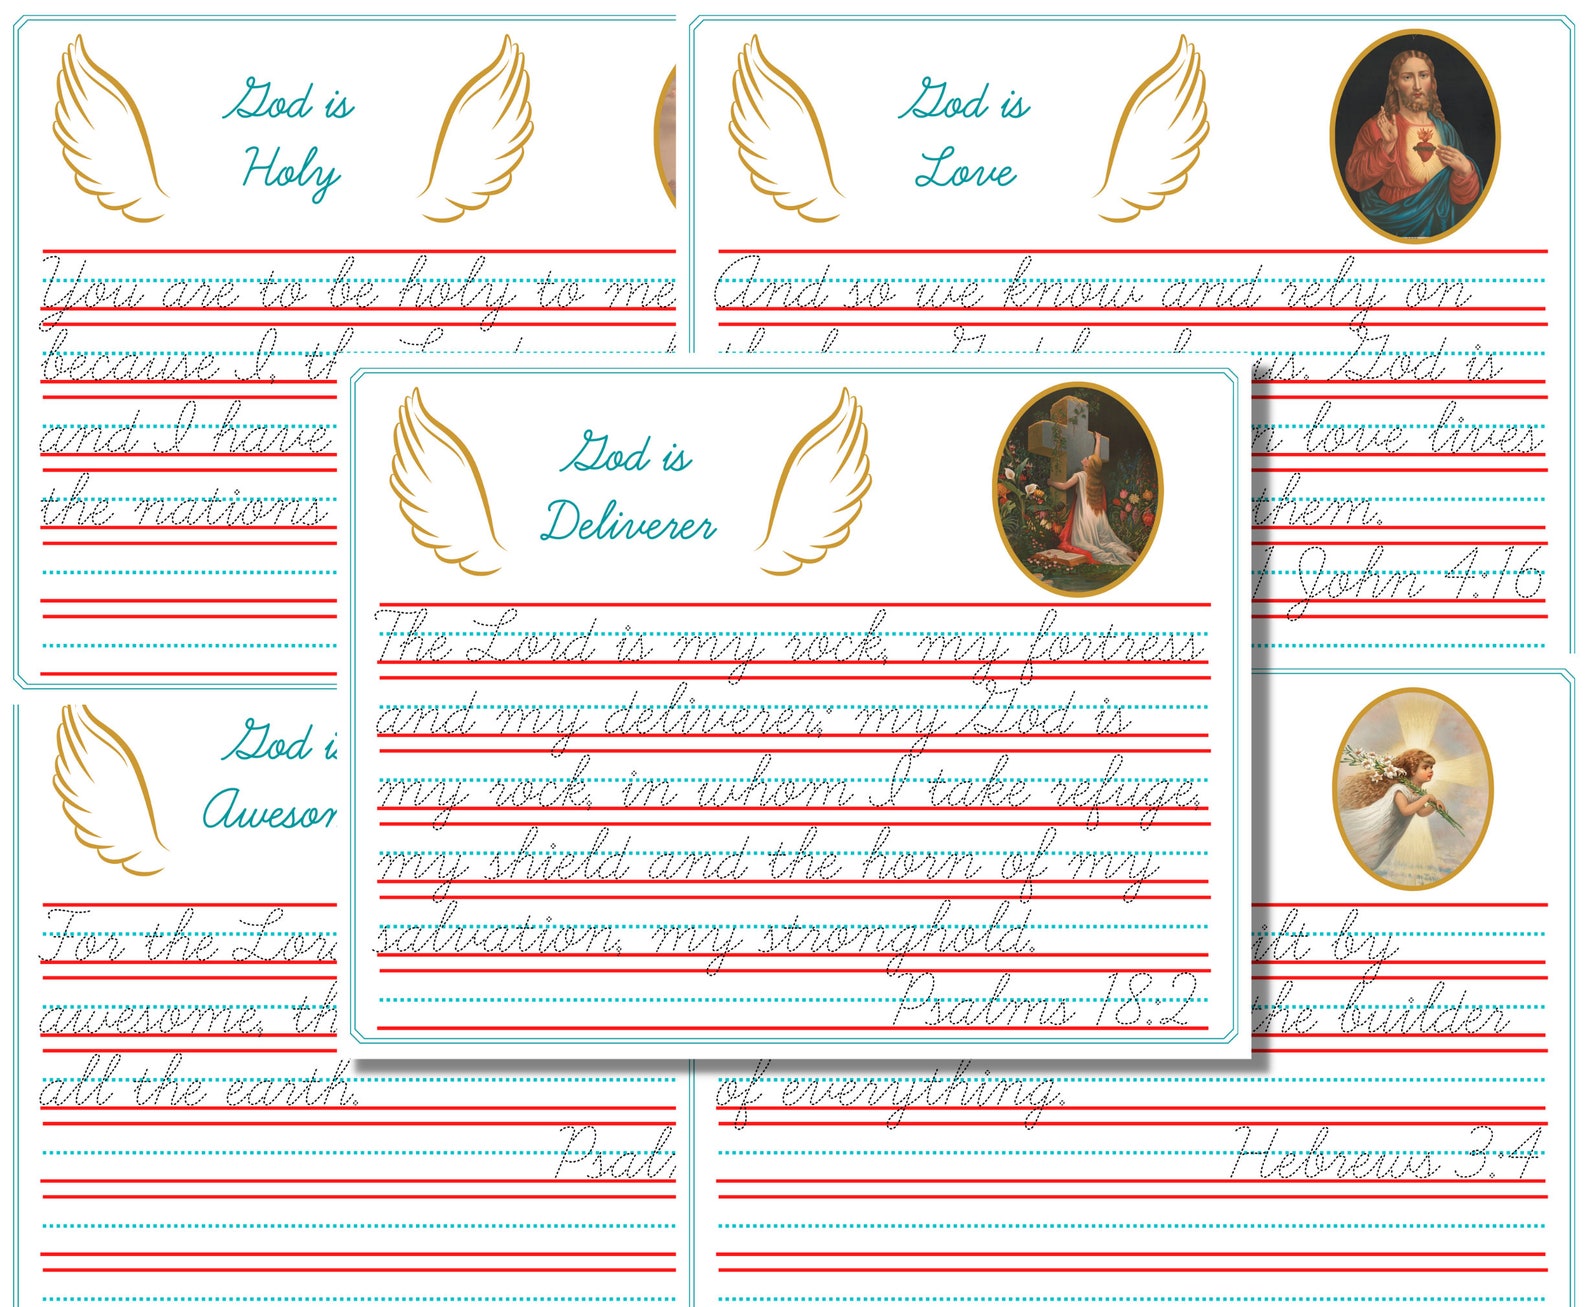 God is
Holy
You are to be holy to me
because I, th
and I have
the nations
God is
Love
And so we know and rely on
us. God is
love lives
them.
1 John 4:16
God is
Deliverer
The Lord is my rock, my fortress
and my deliverer; my God is
my rock, in whom I take refuge,
my shield and the horn of my
salvation, my stronghold.
Psalms 18:2
God is
Aweso
For the Lor
awesome, th
all the earth.
Psal
ilt by
the builder
of everything.
Hebrews 3:4